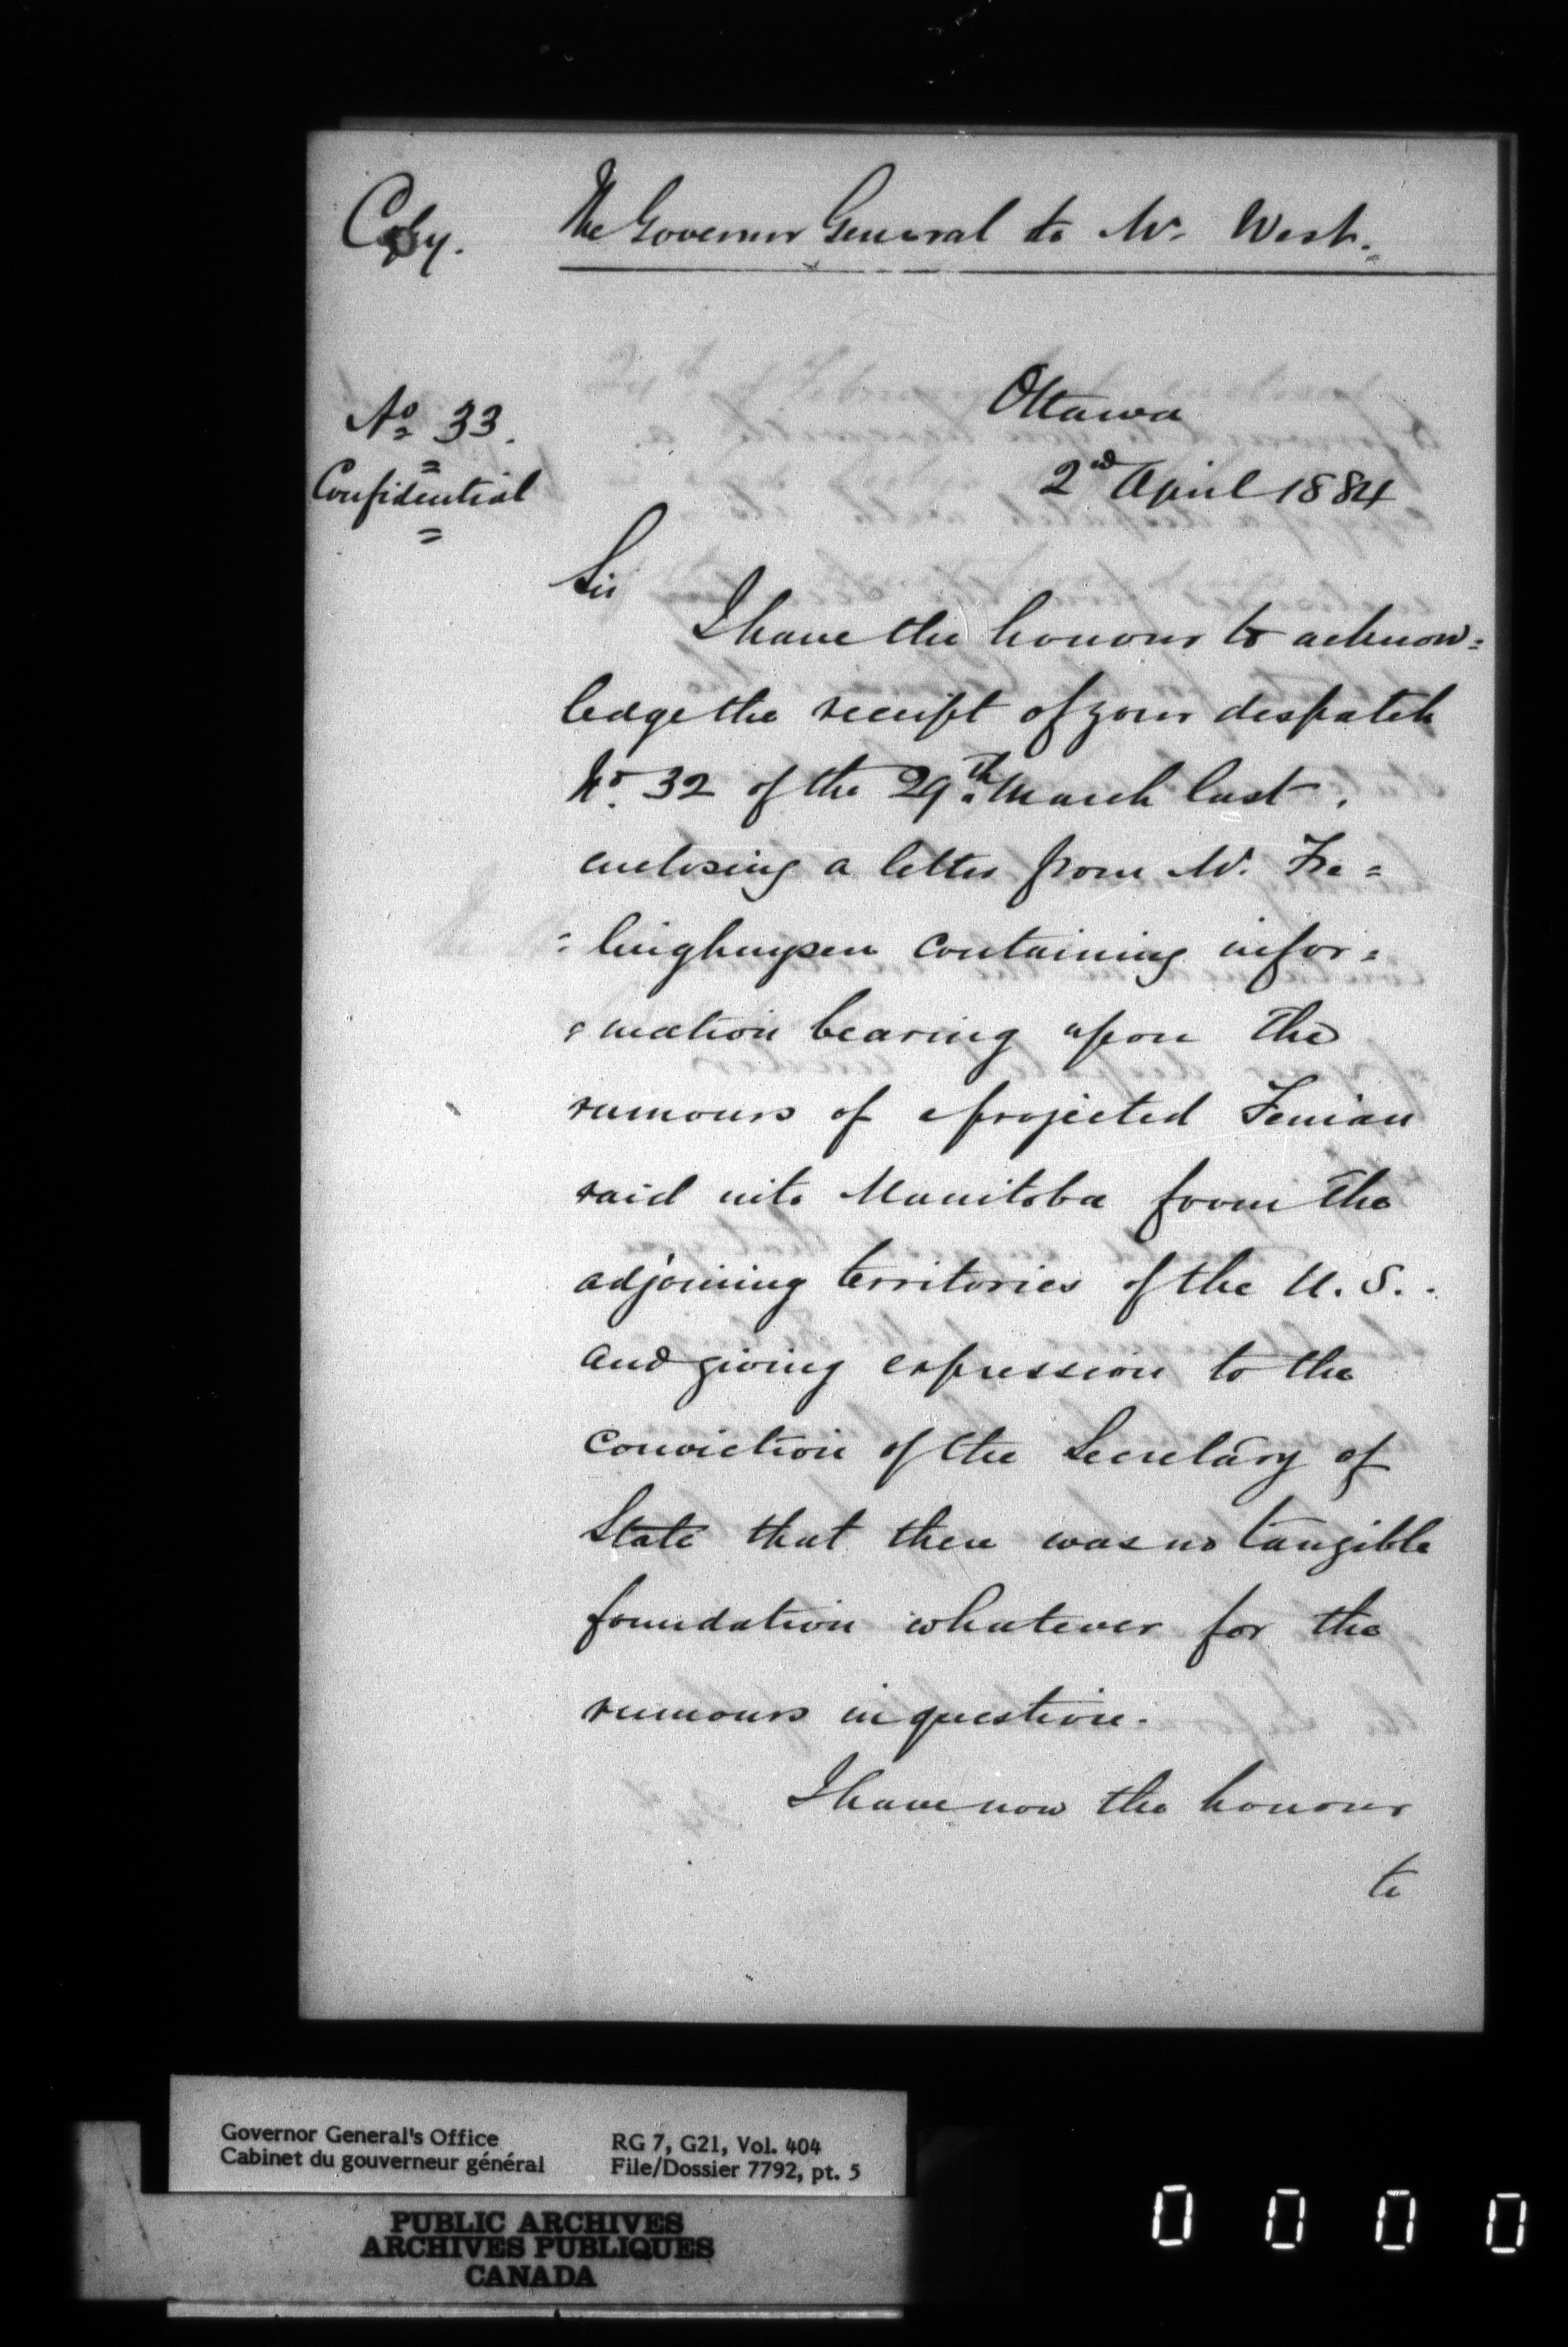 Copy.
The Governor General to Mr. West.
No. 33.
Confidential
Ottawa
2nd April 1884
Sir
I have the honour to acknow=
ledge the receipt of your despatch
No. 32 of the 29th March last,
enclosing a letter from Mr. Fre=
=linghuysen containing infor=
=mation bearing upon the
rumours of a projected Fenian
raid into Manitoba from the
adjoining territories of the U.S.
and giving expression to the
conviction of the Secretary of
State that there was no tangible
foundation whatever for the
rumours in question.
I have now the honour
to
Governor General's Office
Cabinet du gouverneur général
RG 7, G21, Vol. 404
File/Dossier 7792, pt. 5
PUBLIC ARCHIVES
ARCHIVES PUBLIQUES
CANADA
0 0 0 0